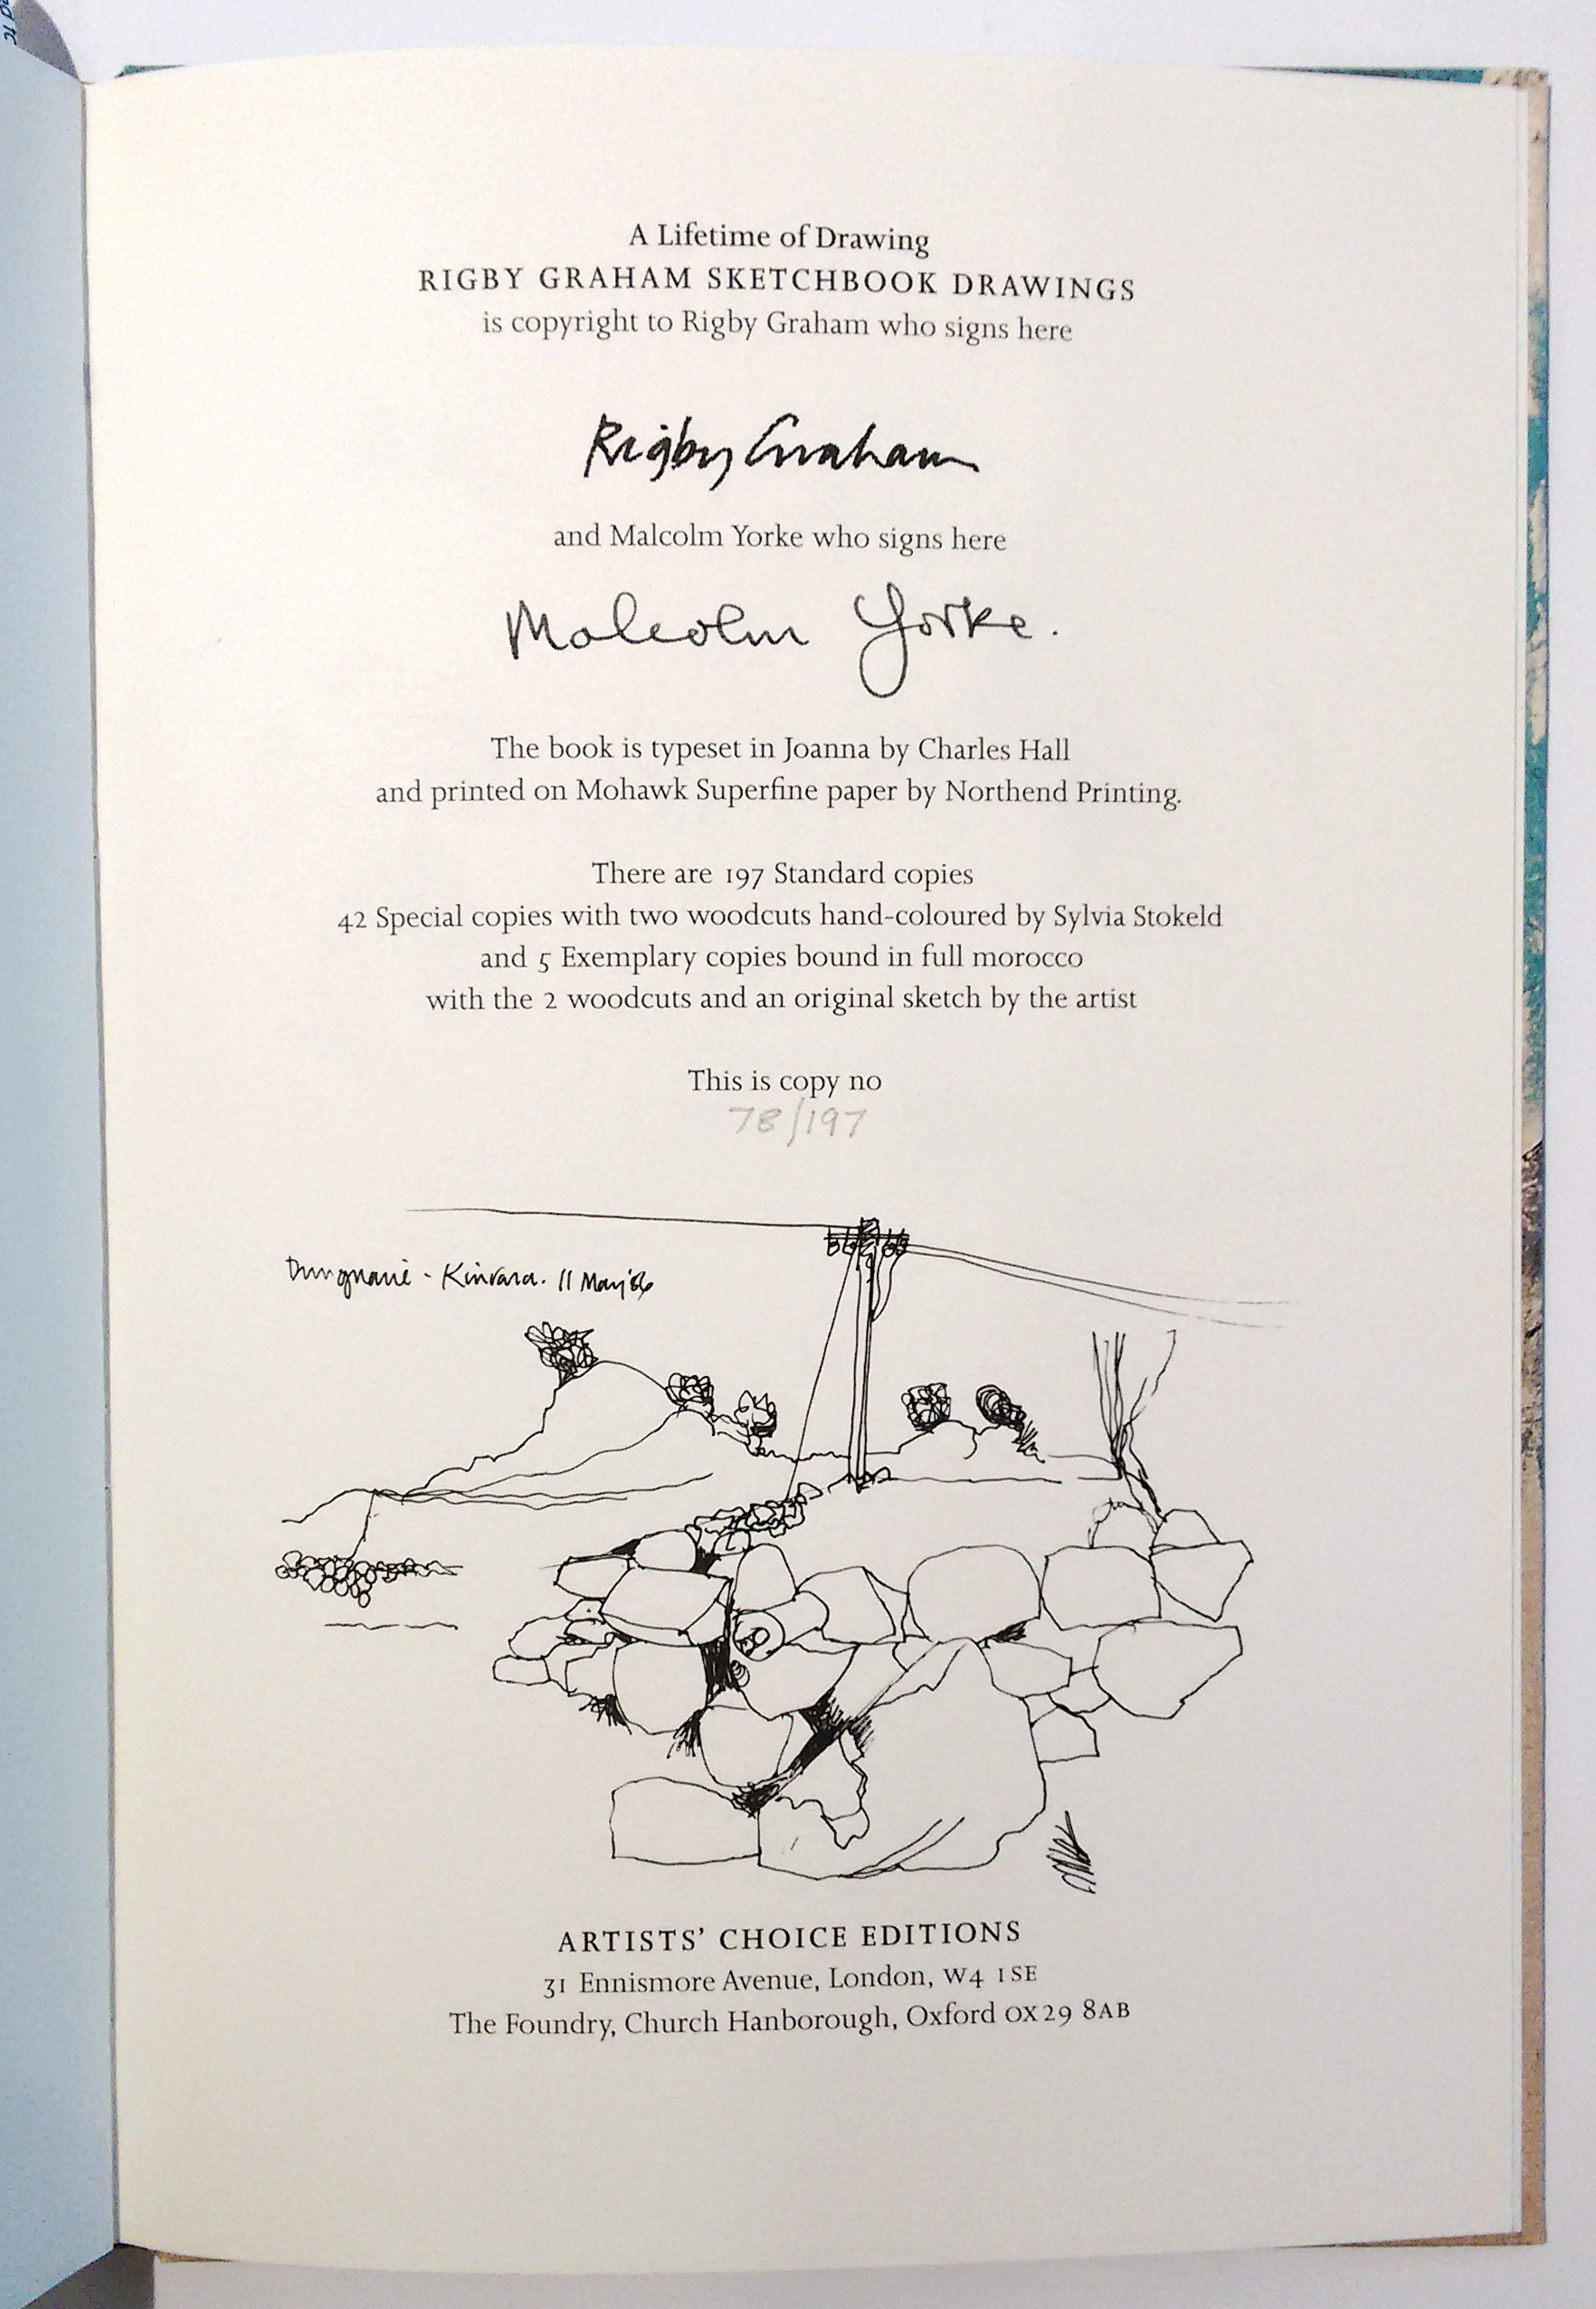 A Lifetime of Drawing
RIGBY GRAHAM SKETCHBOOK DRAWINGS
is copyright to Rigby Graham who signs here
Rigby Graham
and Malcolm Yorke who signs here
Malcolm Yorke.
The book is typeset in Joanna by Charles Hall
and printed on Mohawk Superfine paper by Northend Printing.
There are 197 Standard copies
42 Special copies with two woodcuts hand-coloured by Sylvia Stokeld
and 5 Exemplary copies bound in full morocco
with the 2 woodcuts and an original sketch by the artist
This is copy no
78/197
- Kinvara. 11 May '86
ARTISTS' CHOICE EDITIONS
31 Ennismore Avenue, London, W4 1SE
The Foundry, Church Hanborough, Oxford OX29 8AB